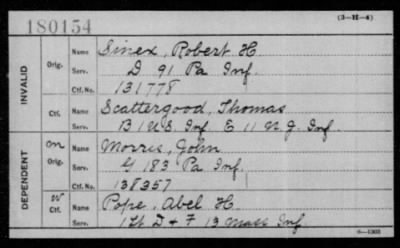 180154
(3-H-4)
INVALID
Orig. Name Sinex, Robert H
Serv. D 91 Pa Inf.
Ctf. No. 131778
Ctf. Name Scattergood, Thomas
Serv. B 1 U.S. Inf. E 11 N.J. Inf.
DEPENDENT
m Orig. Name Morris, John
Serv. G 183 Pa Inf.
Ctf. No. 138357
W Ctf. Name Pope, Abel H.
Serv. 1 Lt D & F 13 Mass Inf
6-1303